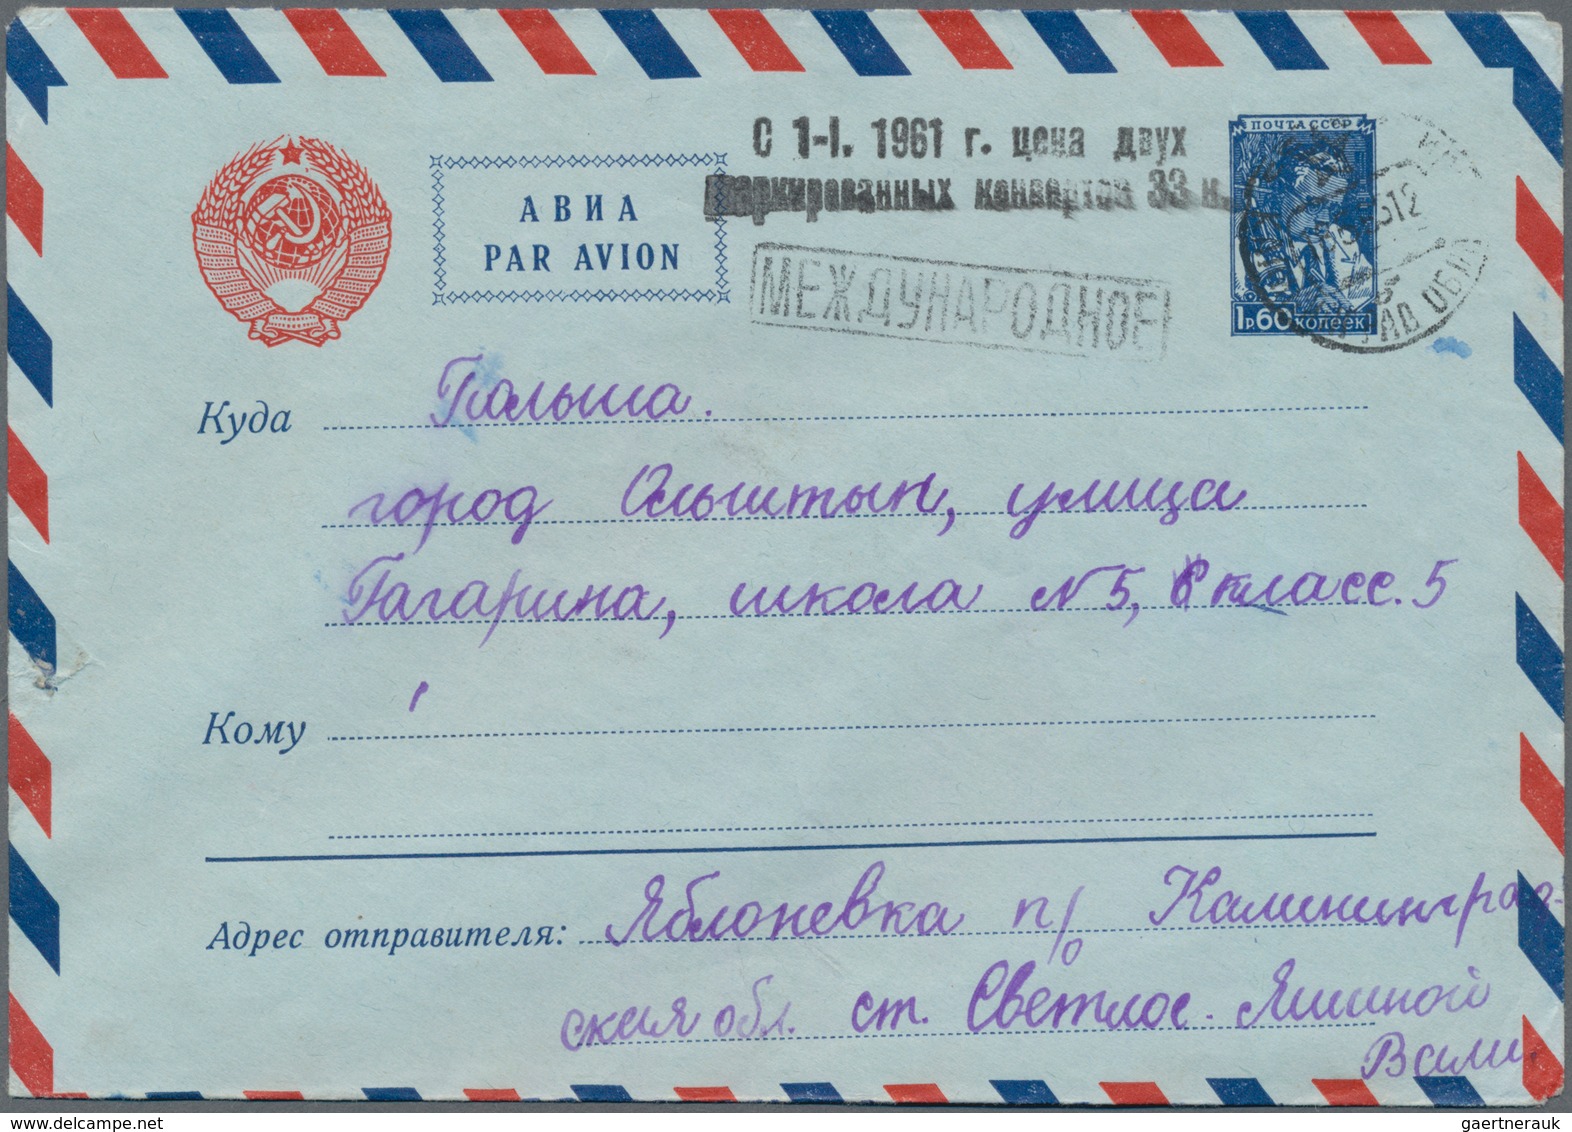 С 1-I. 1961 г. цена двух
маркированных конвертов 33 к.
ПОЧТА СССР
АВИА
PAR AVION
МЕЖДУНАРОДНОЕ
1р.60 копеек
Куда Польша.
город Ольштын, улица
Гагарина, школа N 5, класс. 5
Кому
Адрес отправителя: Яблоневка п/о Калининград-
ская обл. ст. Светлое. Яшиной
Вали.
gaertnerauk @ delcampe.net